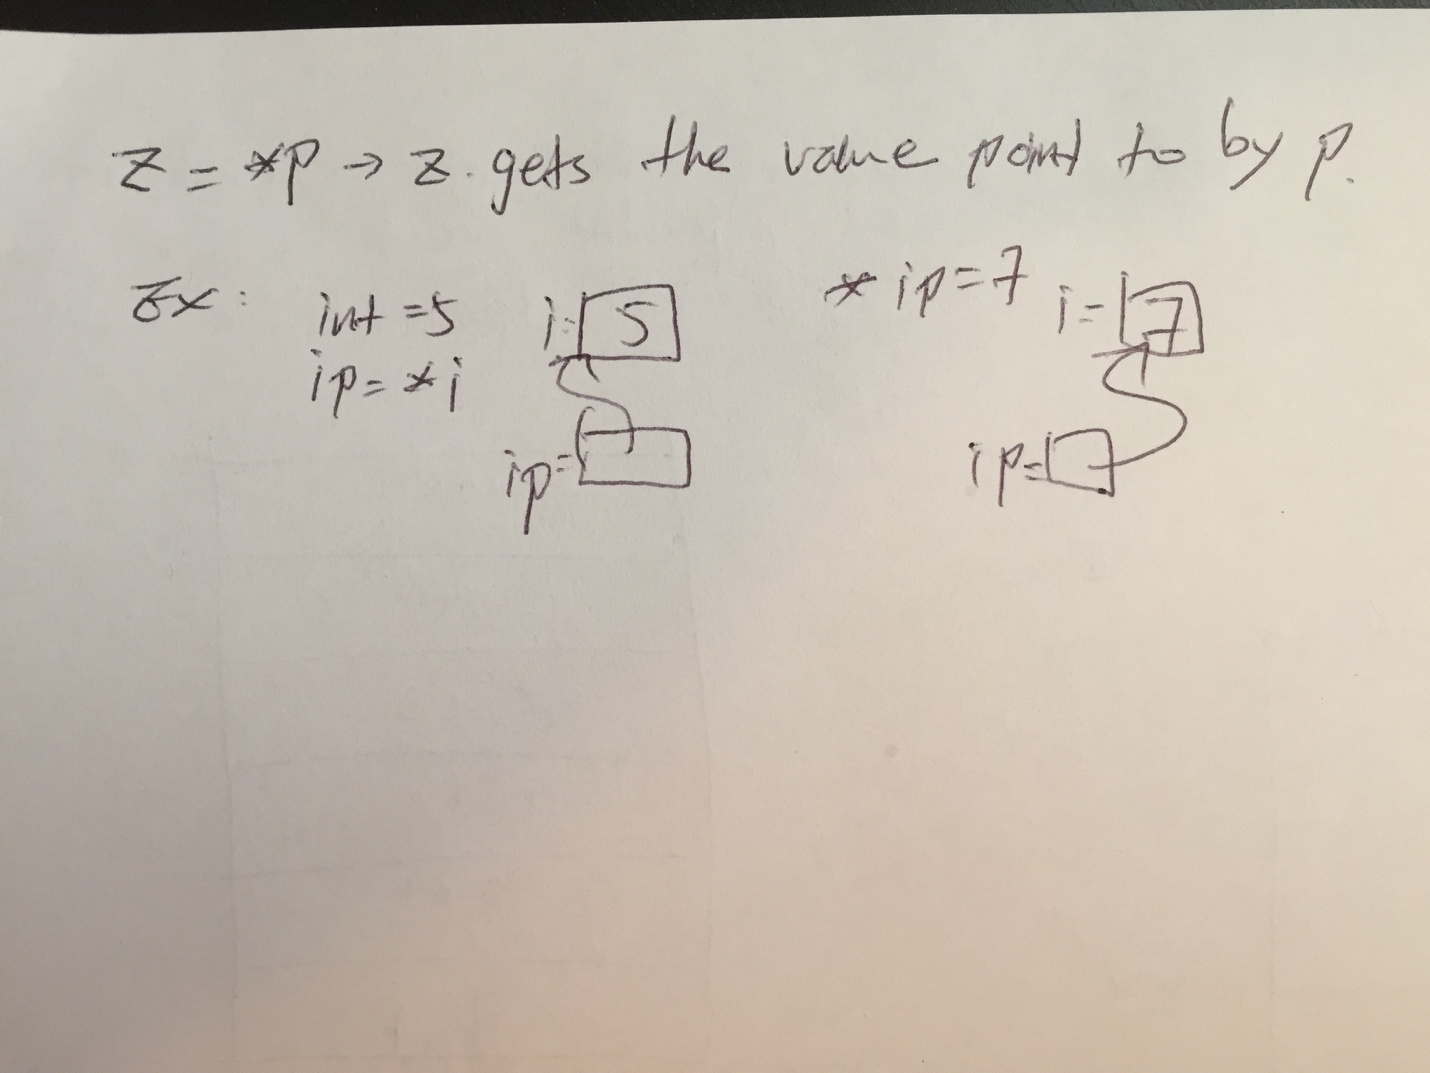 z = *p → z gets the value point to by p.
Ex: int = 5 i = 5 *ip = 7 i = 7
ip = *i
ip = ip =